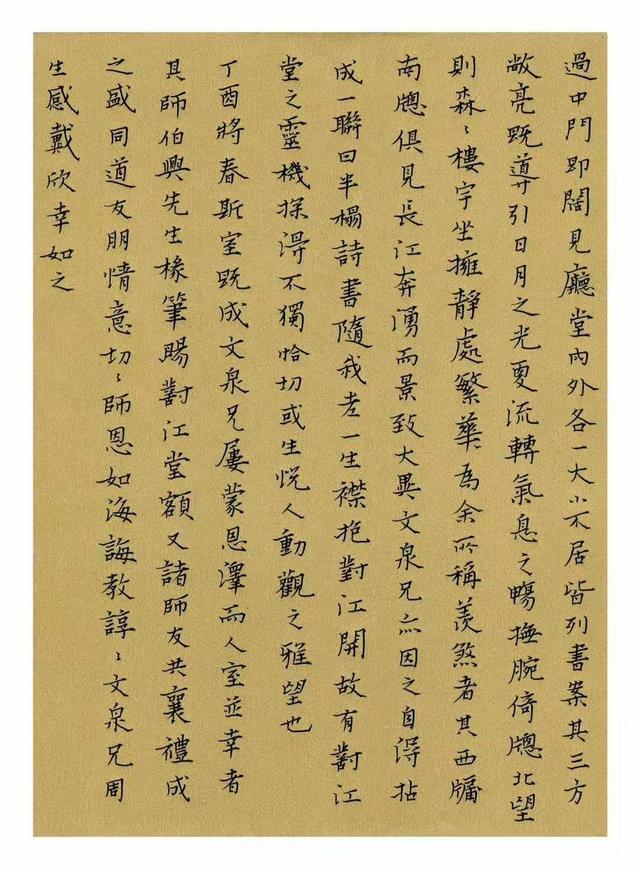 過中門即闊見廳堂內外各一大小不居皆列書案其三方
敞亮既導引日月之光更流轉氣息之暢撫腕倚牕北望
則森〻樓宇坐擁靜處繁華為余所稱羨煞者其西牖
南牕俱見長江奔湧而景致大異文泉兄亦因之自得拈
成一聯曰半榻詩書隨我老一生襟抱對江開故有對江
堂之靈機探得不獨恰切或生悅人動觀之雅望也
丁酉將春斯室既成文泉兄屢蒙恩澤而人室並幸者
其師伯興先生椽筆賜對江堂額又諸師友共襄禮成
之盛同道友朋情意切〻師恩如海誨教諄〻文泉兄周
生感戴欣幸如之